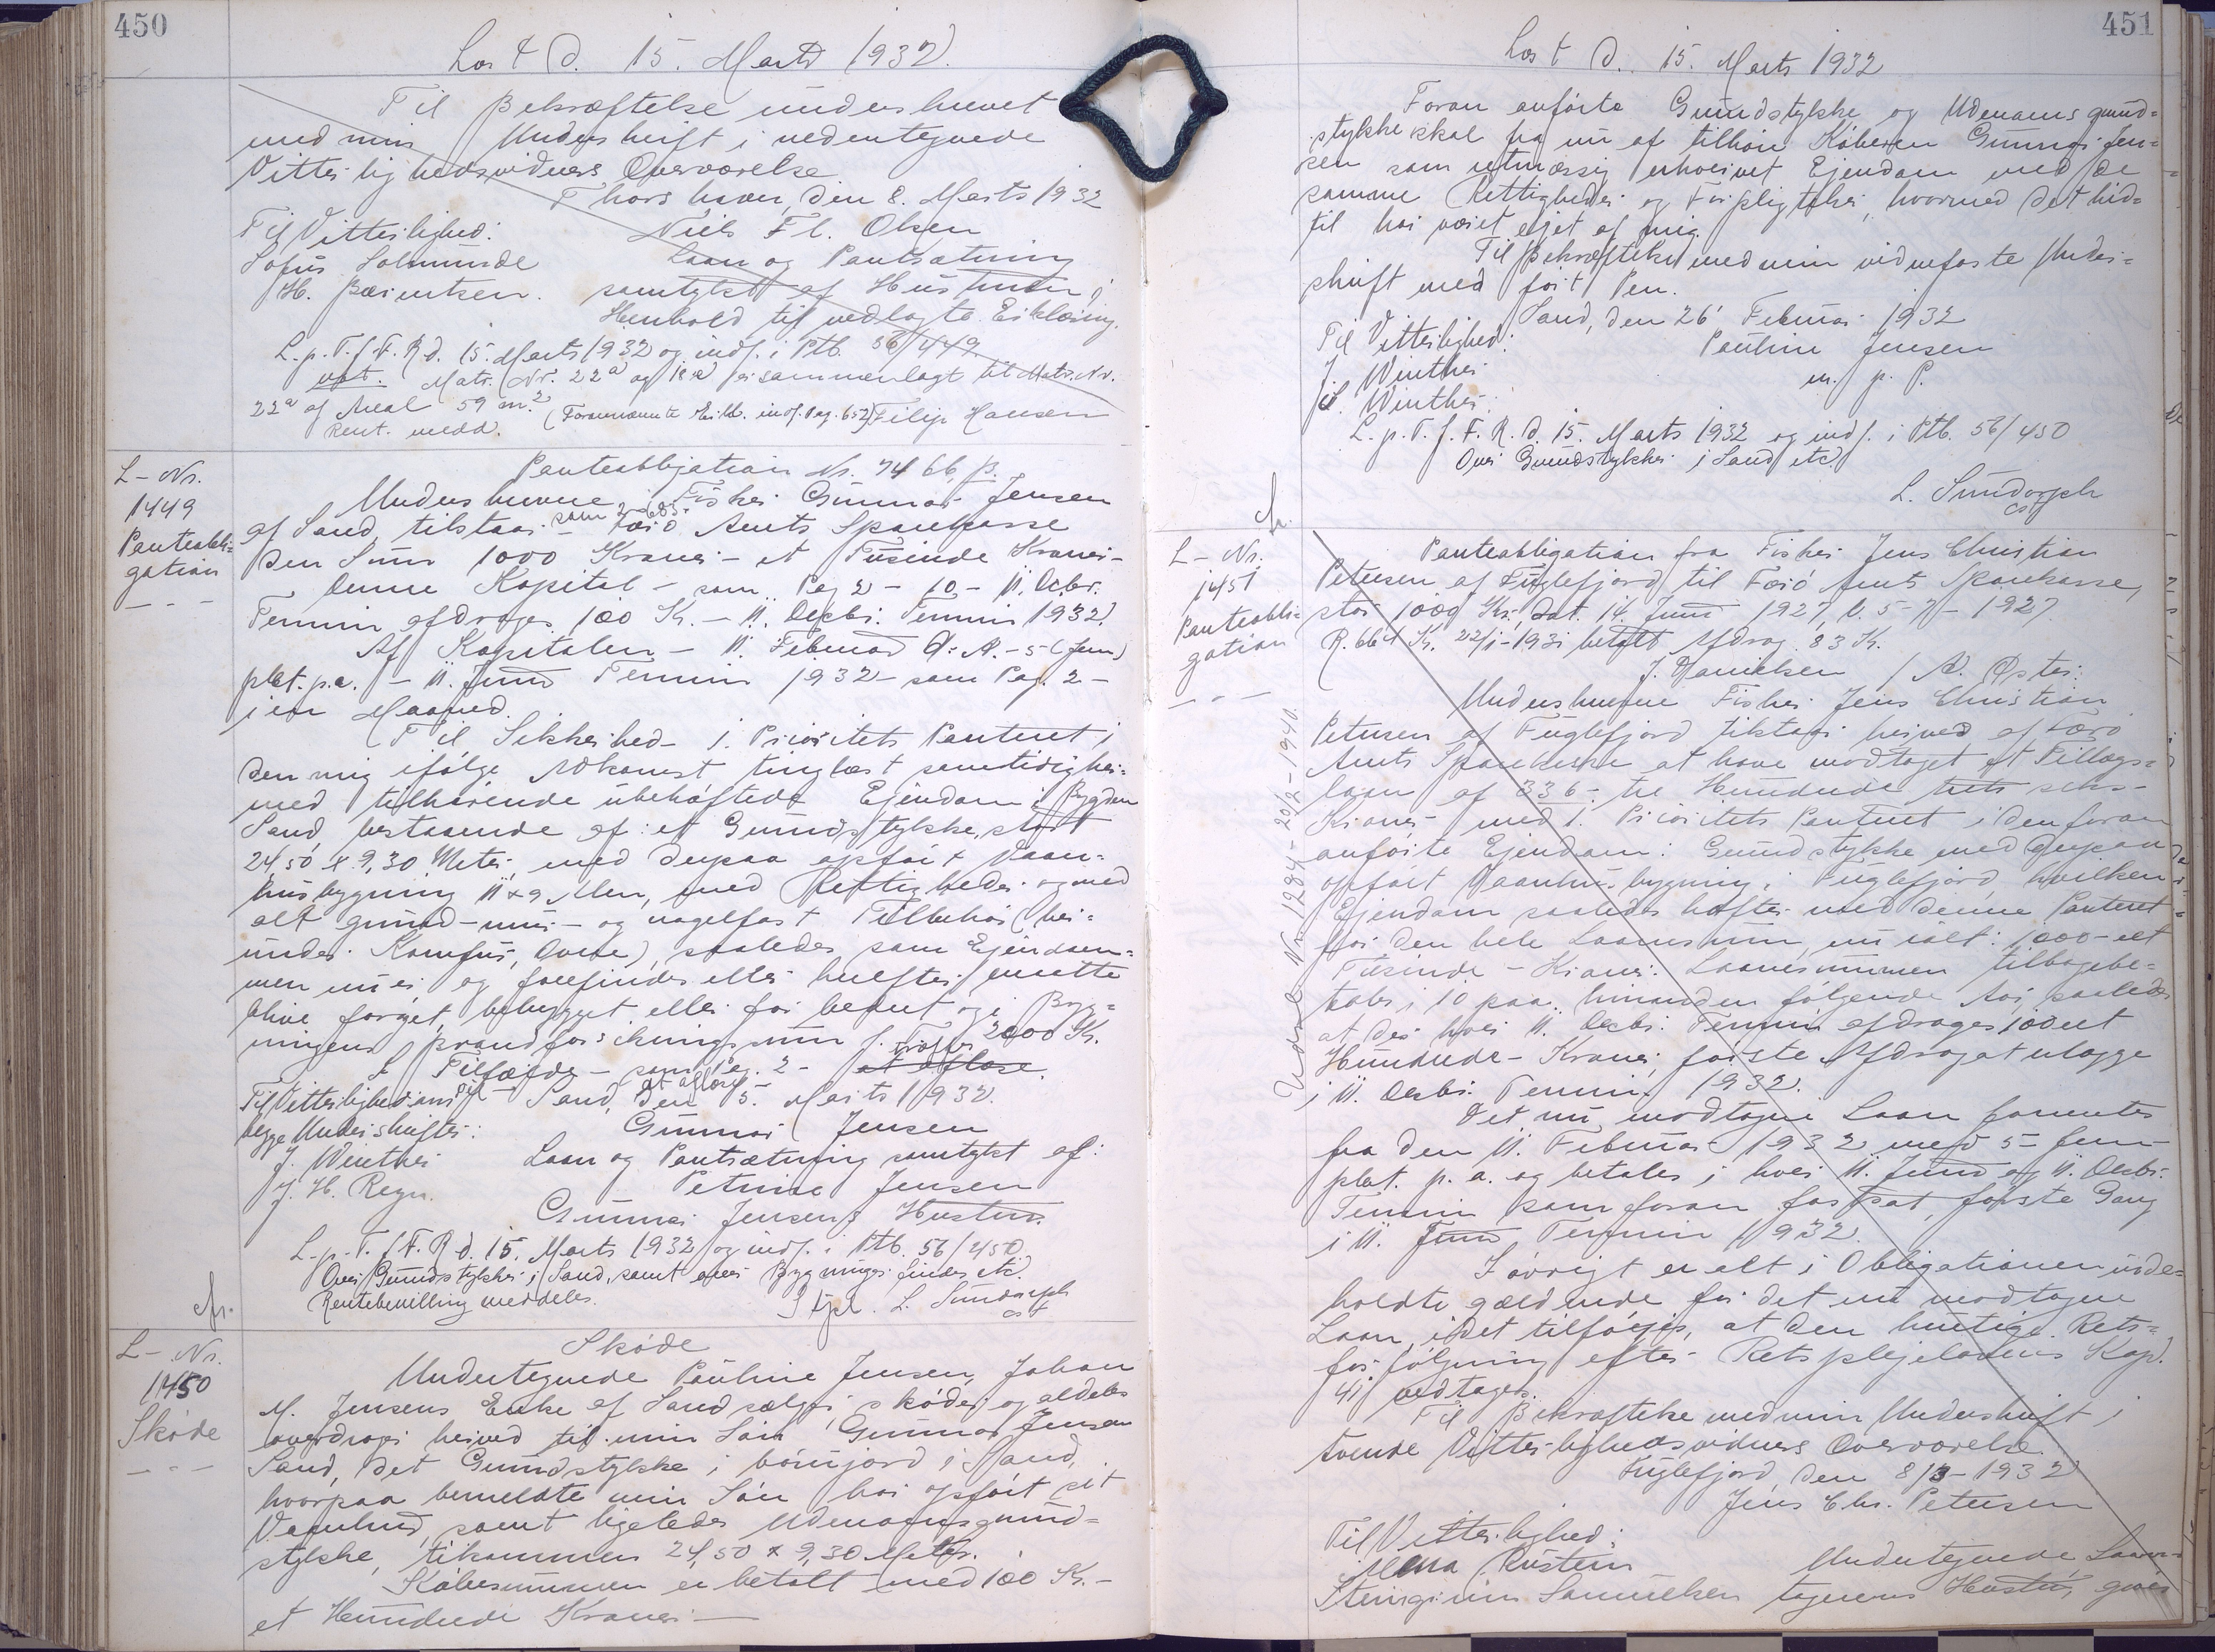 450
Læst d. 15. Marts 1932.
Til Bekræftelse underskrevet
med min Underskrift i undertegnede
Vitterlighedsvidners Overværelse.
Thorshavn, den 8. Marts 1932
Til Vitterlighed: Niels Fl. Olsen
Sofus Solmunde Laan og Pantsætning
H. Berentsen. samtykt af Hustruen i
Henhold til vedlagte Erklæring.
L.p.T.f.F.R.d. 15. Marts 1932 og indf. i Ptb. 56/449
Matr. Nr. 22a og er sammenlagt til Matr. Nr.
22a af Areal 59 m.2 (Forannævnte Erkl. indf. Pag. 652) Filip Hansen
Rent. medd.
L-Nr.
1449
Panteobli-
gation
Panteobligation Nr. 7466 p.
Underskrevne Fisker Gunnar Jensen
af Sand, tilstaar - som 2-685- Færø Amts Sparekasse
den Sum 1000 Kroner - et Tusinde Kroner -
Denne Kapital - som Pag 2 - 10 - 11. Decbr.
Termin afdrages 100 Kr. - 11. Decbr. Termin 1932.
Af Kapitalen - 11. Februar d. A. - 5 (fem)
pCt. p.a. - 11. Juni Termin 1932 - som Pag. 2 -
i en Maaned.
Til Sikkerhed - 1. Prioritets Panteret i
den mig ifølge Adkomst tinglæst samtidig her-
med tilhørende ubehæftede Ejendom i Bygden
Sand, bestaaende af: et Grundstykke, stort
24,50 x 9,30 Meter, med derpaa opført Vaan-
husbygning 11 x 9 Alen, med Rettigheder og med
alt grund- mur- og nagelfast Tilbehør (her-
under Komfur, Ovne), saaledes som Ejendom-
men nu er og forefindes eller herefter maatte
blive forøget, bebygget eller forbedret og i Byg-
ningens Brandforsikringssum f. T. 2000 Kr.
I Tilfælde - som Pag. 2 - at afløse.
Til Vitterlighed om Sand, den 5. Marts 1932.
begge Underskrifter: Gunnar Jensen
J. Winther Laan og Pantsætning samtykt af:
J. H. Regn. Petrine Jensen
Gunnar Jensens Hustru.
L.p.T.f.F.R.d. 15. Marts 1932 og indf. i Ptb. 56/450
Over Grundstykker i Sand, samt over Bygninger findes etc.
Rentebevilling meddeles. L. Sundorph
cst
L-Nr.
1450
Skøde
Skøde
Undertegnede Pauline Jensen, Johan
M. Jensens Enke af Sand sælger, skøder og aldeles
overdrager herved til min Søn Gunnar Jensen
Sand, det Grundstykke i bøurjord i Sand,
hvorpaa bemeldte min Søn har opført sit
Vaanhus, samt ligeledes Udenomsgrund-
stykke, tilsammen 24,50 x 9,30 Meter.
Købesummen er betalt med 100 Kr. -
et Hundrede Kroner -
451
Læst d. 15. Marts 1932
Foran anførte Grundstykke og Udenomsgrund-
stykke skal fra nu af tilhøre Køberen Gunnar Jen-
sen som retmæssig erhvervet Ejendom med de
samme Rettigheder og Forpligtelser, hvormed det hid-
til har været ejet af mig.
Til Bekræftelse med min vidnefaste Under-
skrift med ført Pen.
Sand, den 26' Februar 1932
Til Vitterlighed: Pauline Jensen
J. Winther m. f. P.
J. Winther.
L.p.T.f.F.R.d. 15. Marts 1932 og indf. i Ptb. 56/450
Over Grundstykker i Sand etc.
L. Sundorph
cst
L-Nr.
1451
Panteobli-
gation
Panteobligation fra Fisker Jens Christian
Petersen af Fuglefjord til Færø Amts Sparekasse,
stor 1000 Kr., dat. 14. Juni 1927, l. 5-7-1927.
R. 664 Kr. 22/1-1931 betalt Afdrag 83 Kr.
J. Danielsen / A. Øster.
Underskrevne Fisker Jens Christian
Petersen af Fuglefjord tilstaar herved af Færø
Amts Sparekasse at have modtaget et Tillægs-
laan af 336 - tre Hundrede treti seks -
Kroner med 1. Prioritets Panteret i den foran
anførte Ejendom: Grundstykke med derpaa
opført Vaanhusbygning i Fuglefjord, hvilken
Ejendom saaledes hæfter med denne Panteret
for den hele Laanesum, nu ialt: 1000 - et
Tusinde - Kroner. Laanesummen tilbagebe-
tales i 10 paa hinanden følgende Aar, saaledes
at der hver 11. Decbr. Termin afdrages 100 et
Hundrede - Kroner, første Afdrag at erlægge
i 11. Decbr. Termin 1932.
Det nu modtagne Laan forrentes
fra den 11. Februar 1932 med 5 - fem -
pCt. p. a. og betales i hver 11. Juni og 11. Decbr.
Termin som foran fastsat, første Gang
i 11. Juni Termin 1932.
I øvrigt er alt i Obligationen inde-
holdte gældende for det nu modtagne
Laan, idet tilføjes, at den hurtige Rets-
forfølgning efter Retsplejelovens Kap.
41 vedtages.
Til Bekræftelse med min Underskrift i
tvende Vitterlighedsvidners Overværelse.
Fuglefjord, den 8/3-1932
Jens Chr. Petersen
Til Vitterlighed:
Rustein Undertegnede Laan-
Steingrim Samuelsen tagerens Hustru, giver
Udsl. Nr. 1284 - 20/2-1940.